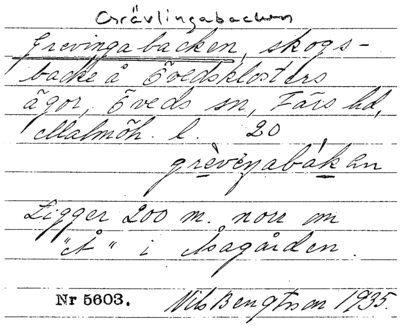 Grävlingabacken
Grevingabacken, skogs-
backe å Övedsklosters
ägor, Öveds sn, Färs hd,
Malmöh. l. 20
grèveŋabákan
Ligger 200 m. norr om
"Å" i Åsagården.
Nr 5603. Nils Bengtsson 1935.